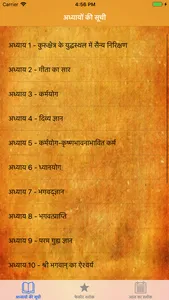 Carrier 4:56 PM
अध्यायों की सूची
अध्याय 1 - कुरुक्षेत्र के युद्धस्थल में सैन्य निरिक्षण
अध्याय 2 - गीता का सार
अध्याय 3 - कर्मयोग
अध्याय 4 - दिव्य ज्ञान
अध्याय 5 - कर्मयोग-कृष्णभावनाभावित कर्म
अध्याय 6 - ध्यानयोग
अध्याय 7 - भगवद्ज्ञान
अध्याय 8 - भगवत्प्राप्ति
अध्याय 9 - परम गुह्य ज्ञान
अध्याय 10 - श्री भगवान् का ऐश्वर्य
अध्यायों की सूची